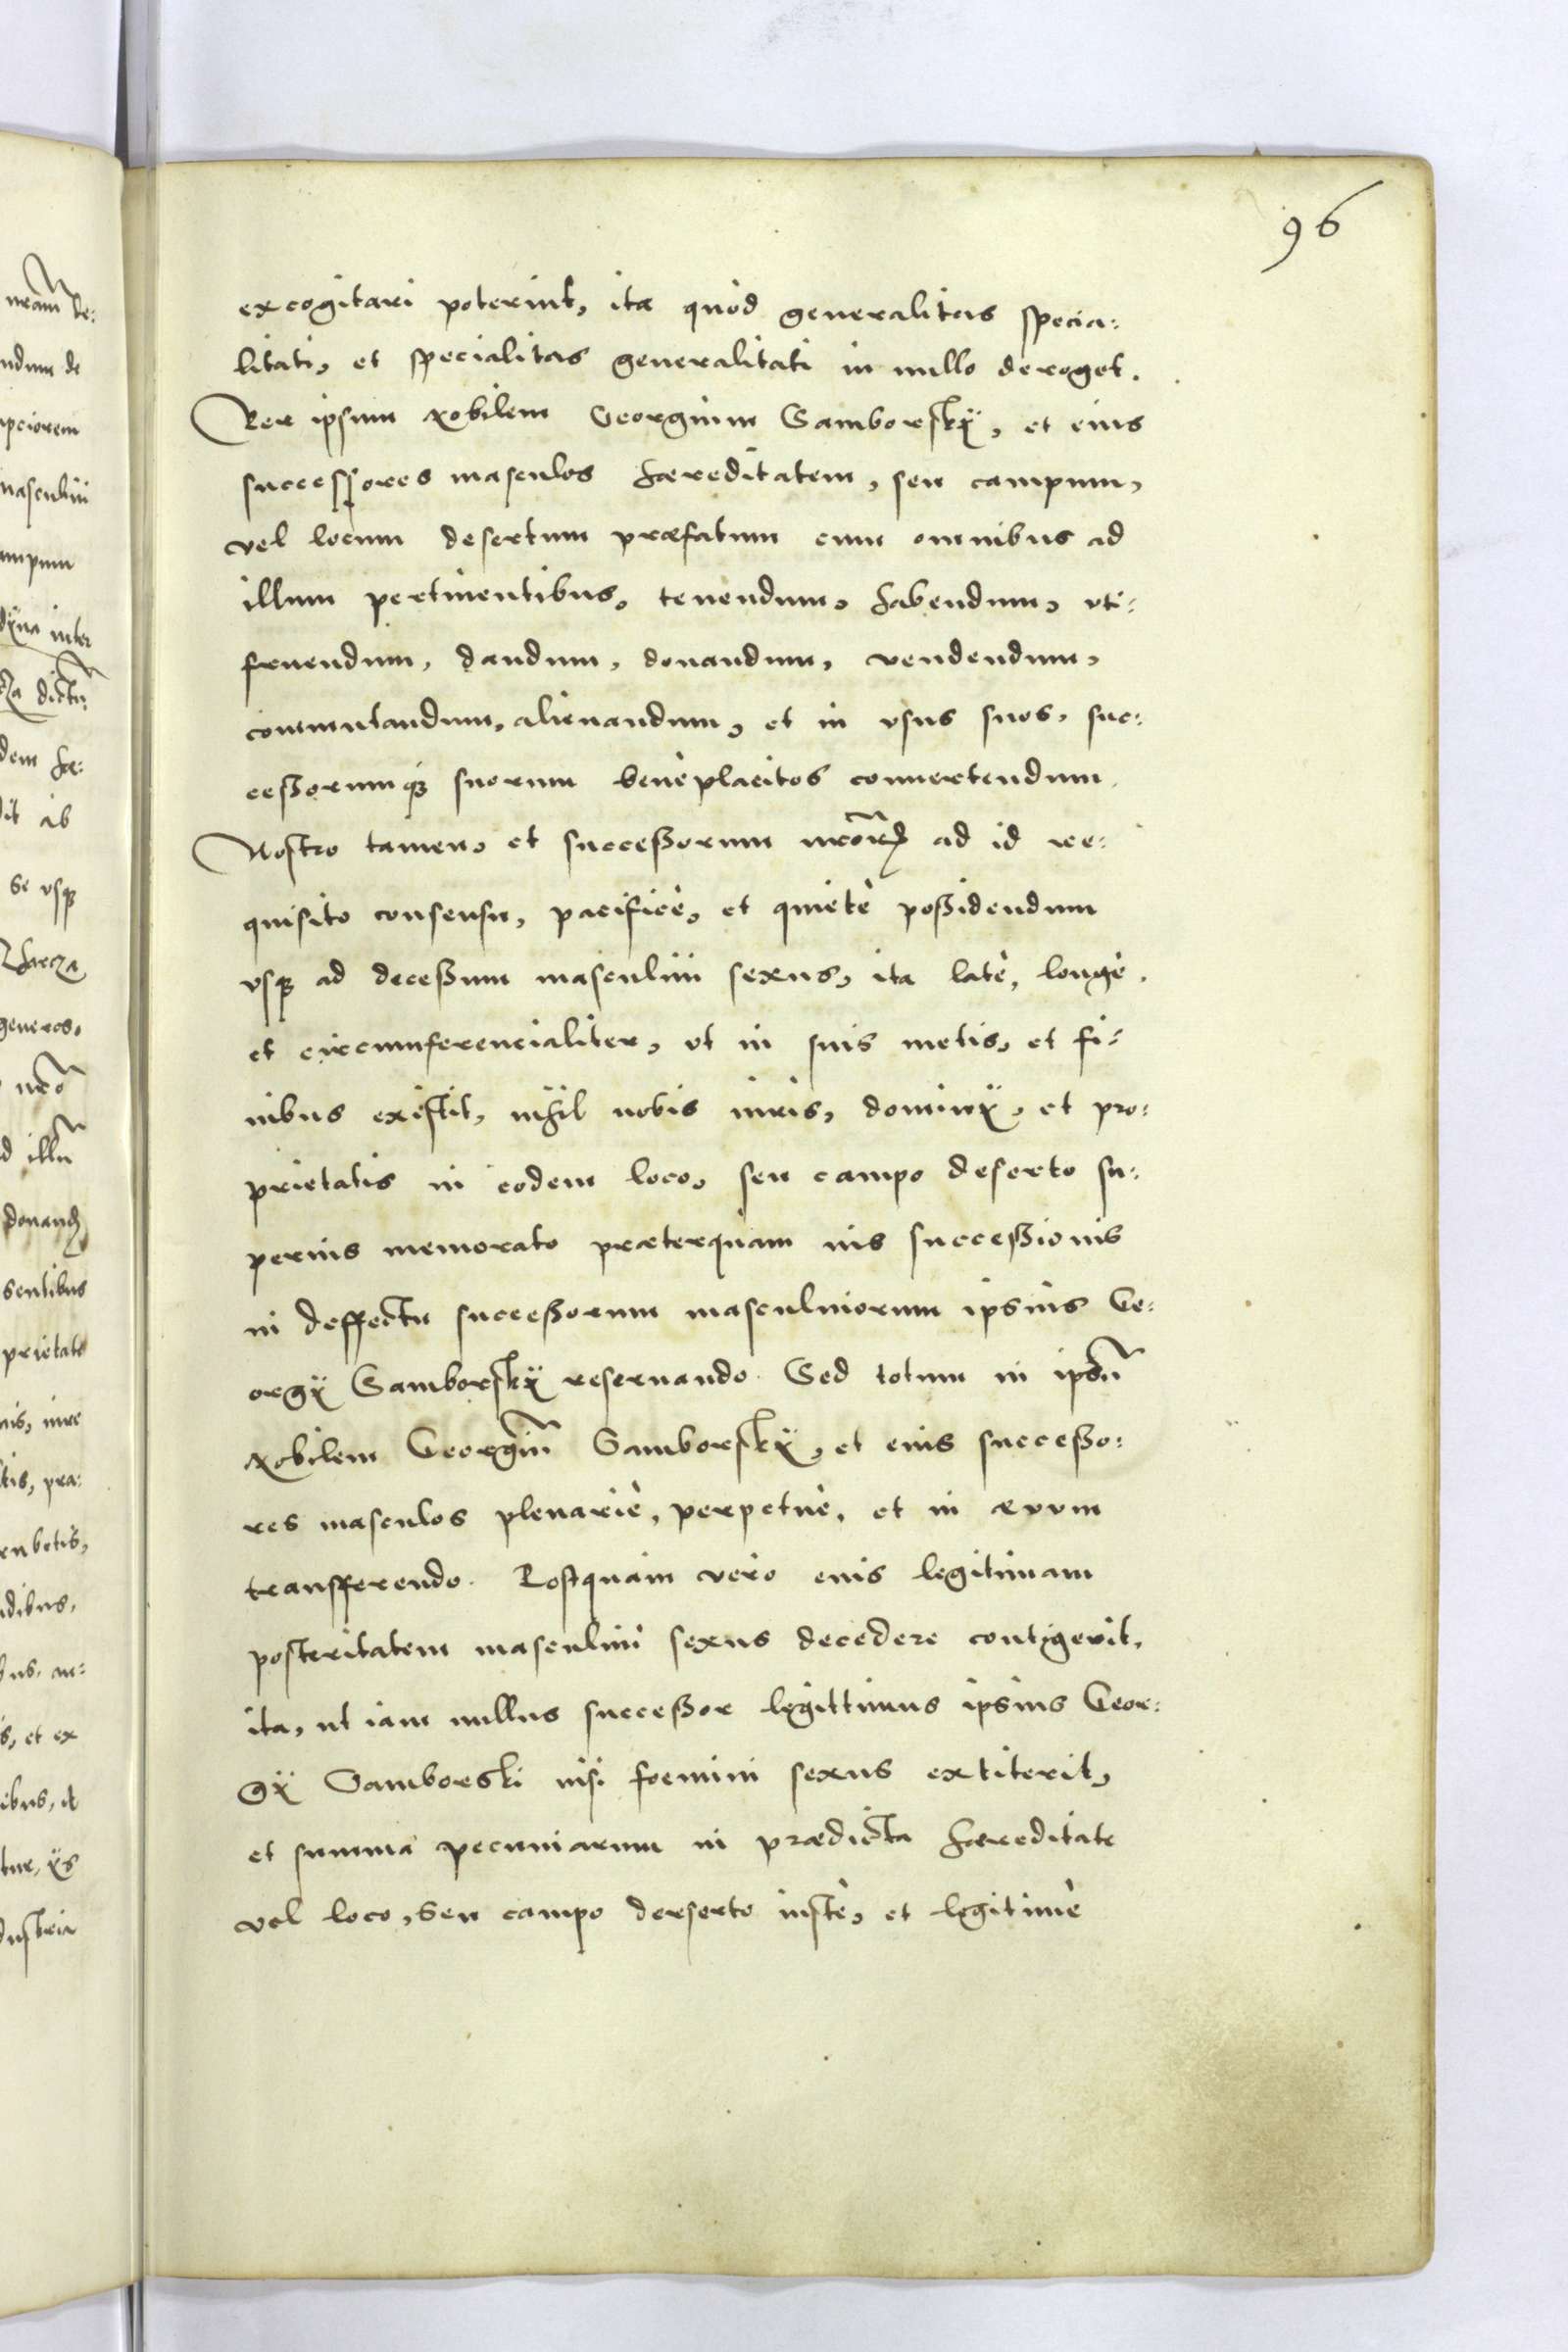 96
excogitari poterint, ita quòd generalitas specia:
litati, et specialitas generalitati in nullo deroget.
Per ipsum Nobilem Georgium Samborskÿ, et eius
successores masculos hæreditatem, seu campum,
vel locum desertum præfatum cum omnibus ad
illum pertinentibus, tenendum, habendum, vti:
fruendum, dandum, donandum, vendendum,
commutandum, alienandum, et in vsus suos, suc:
ceßorumq₃ suorum beneplacitos conuertendum.
Nostro tamen, et succeßorum nr̃orꝝ ad id re:
quisito consensu, pacificè, et quietè poßidendum
vsq₃ ad deceßum masculini sexus, ita latè, longè,
et circumferencialiter, vt in suis metis, et fi:
nibus existit, nihil nobis iuris, dominÿ, et pro:
prietatis in eodem loco, seu campo deserto su:
perius memorato præterquam ius succeßionis
in deffectu succeßorum masculinorum ipsius Ge:
orgÿ Samborskÿ reseruando. Sed totum in ipsũ
Nobilem Georgiũ Samborskÿ, et eius succeßo:
res masculos plenariè, perpetuè, et in æuum
transfferendo. Postquam verò eius legitimam
posteritatem masculini sexus decedere contigerit,
ita, ut iam nullus succeßor legittimus ipsius Geor:
gÿ Samborski nisi foemini sexus extiterit,
et summa pecuniarum in prædicta hæreditate
vel loco, seu campo derserto iustè, et legitimè
nr̃am
ndum de
masculini
ampum
inter
dictũ
dit ab
se vsq₃
generos,
nr̃o
illũ
donandꝫ
sentibus
prietate
iure
præ:
et ex